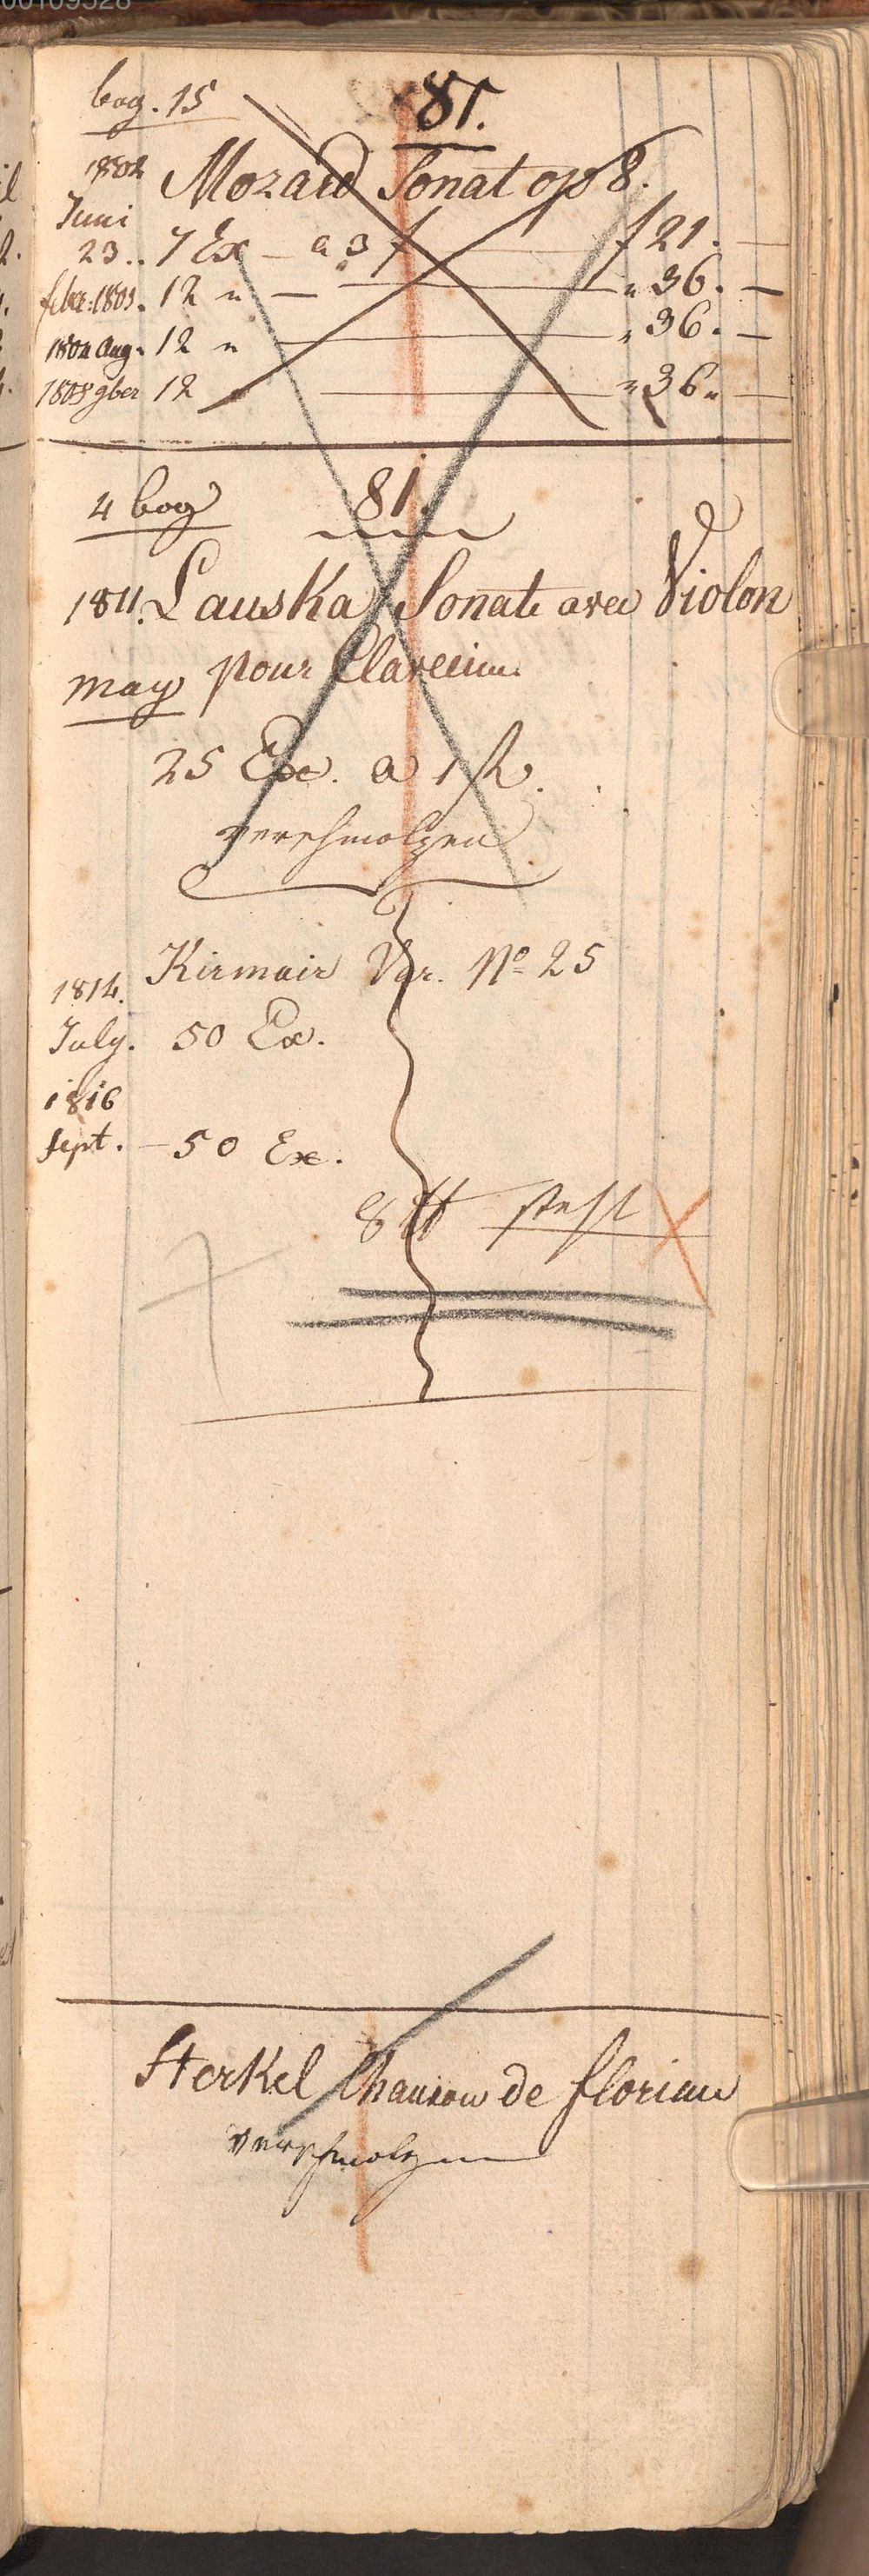 bog. 15
81.
1802 Mozard Sonat op 8.
Juni
23.. 7 Ex — a 3 f — f 21. —
febr: 1803. 12 " — " 36. —
1804 Aug. 12 " — " 36. —
1805 9ber 12 " — " 36 " —
4 bog
81.
1811. Lauska Sonate avec Violon
may pour Clavecin.
25 Ex. a 1 f
verschmolzen
1814. Kirmair Var. No 25
July. 50 Ex.
1816
Sept. — 50 Ex.
8 tt steht
Sterkel Chanson de florian
verschmolzen